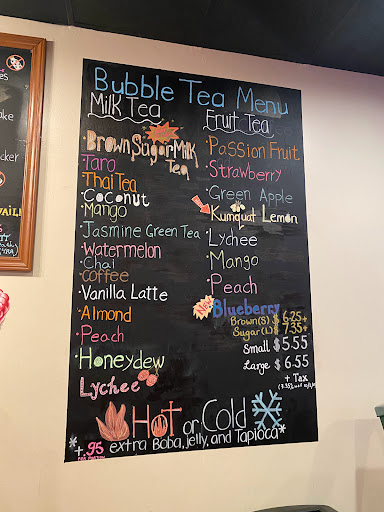 Bubble Tea Menu
Milk Tea
Brown Sugar Milk Tea
Taro
Thai Tea
Coconut
Mango
Jasmine Green Tea
Watermelon
Chai
Coffee
Vanilla Latte
Almond
Peach
Honeydew
Lychee
Fruit Tea
Passion Fruit
Strawberry
Green Apple
Kumquat Lemon
Lychee
Mango
Peach
New
Blueberry
Brown(S) $6.25+
Sugar(L) $7.35+
Small $5.55
Large $6.55
+ Tax
Hot or Cold
*+.95 extra Boba, Jelly, and Tapioca*